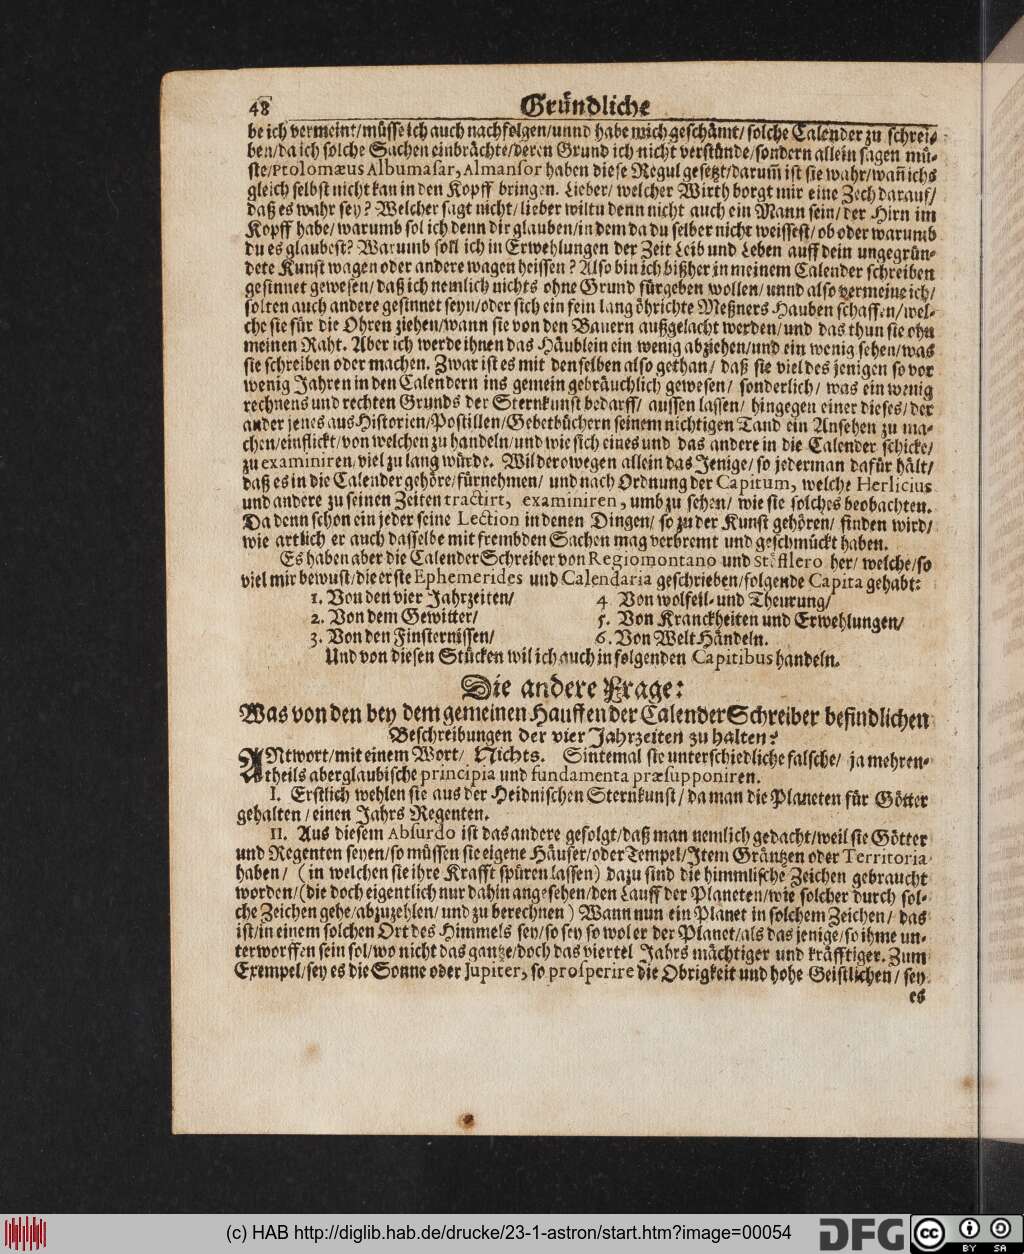 48 Gründliche
be ich vermeint/müsse ich auch nachfolgen/unnd habe mich geschämt/solche Calender zu schrei-
ben/da ich solche Sachen einbrächte/deren Grund ich nicht verstünde/sondern allein sagen mü-
ste/Ptolomæus Albumasar, Almansor haben diese Regul gesetzt/darum̃ ist sie wahr/wañ ichs
gleich selbst nicht kan in den Kopff bringen. Lieber/ welcher Wirth borgt mir eine Zech darauf/
daß es wahr sey? Welcher sagt nicht/lieber wiltu denn nicht auch ein Mann sein/der Hirn im
Kopff habe/warumb sol ich denn dir glauben/in dem da du selber nicht weissest/ob oder warumb
du es glaubest? Warumb soll ich in Erwehlungen der Zeit Leib und Leben auff dein ungegrün-
dete Kunst wagen oder andere wagen heissen? Also bin ich bißher in meinem Calender schreiben
gesinnet gewesen/daß ich nemlich nichts ohne Grund fürgeben wollen/unnd also vermeine ich/
solten auch andere gesinnet seyn/oder sich ein fein lang öhrichte Meßners Hauben schaffen/wel-
che sie für die Ohren ziehen/wann sie von den Bauern außgelacht werden/und das thun sie ohn
meinen Raht. Aber ich werde ihnen das Häublein ein wenig abziehen/und ein wenig sehen/was
sie schreiben oder machen. Zwar ist es mit denselben also gethan/ daß sie viel des jenigen so vor
wenig Jahren in den Calendern ins gemein gebräuchlich gewesen/ sonderlich/ was ein wenig
rechnens und rechten Grunds der Sternkunst bedarff/ aussen lassen/ hingegen einer dieses/der
ander jenes aus Historien/Postillen/Gebetbüchern seinem nichtigen Tand ein Ansehen zu ma-
chen/einflickt/von welchen zu handeln/und wie sich eines und das andere in die Calender schicke/
zu examiniren/viel zu lang würde. Wil derowegen allein das Jenige/ so jederman dafür hält/
daß es in die Calender gehöre/fürnehmen/ und nach Ordnung der Capitum, welche Herlicius
und andere zu seinen Zeiten tractirt, examiniren, umb zu sehen/ wie sie solches beobachten.
Da denn schon ein jeder seine Lection in denen Dingen/ so zu der Kunst gehören/ finden wird/
wie artlich er auch dasselbe mit frembden Sachen mag verbremt und geschmückt haben.
Es haben aber die Calender Schreiber von Regiomontano und Stöfflero her/ welche/so
viel mir bewust/die erste Ephemerides und Calendaria geschrieben/folgende Capita gehabt:
1. Von den vier Jahrzeiten/ 4 Von wolfeil- und Theurung/
2. Von dem Gewitter/ 5. Von Kranckheiten und Erwehlungen/
3. Von den Finsternissen/ 6. Von Welt Händeln.
Und von diesen Stücken wil ich auch in folgenden Capitibus handeln.
Die andere Frage:
Was von den bey dem gemeinen Hauffen der Calender Schreiber befindlichen
Beschreibungen der vier Jahrzeiten zu halten?
ANtwort/mit einem Wort/ Nichts. Sintemal sie unterschiedliche falsche/ ja mehren-
theils aberglaubische principia und fundamenta præsupponiren.
I. Erstlich wehlen sie aus der Heidnischen Sternkunst/da man die Planeten für Götter
gehalten/einen Jahrs Regenten.
II. Aus diesem Absurdo ist das andere gefolgt/daß man nemlich gedacht/weil sie Götter
und Regenten seyen/so müssen sie eigene Häuser/oder Tempel/Item Gräntzen oder Territoria
haben/ (in welchen sie ihre Krafft spüren lassen) dazu sind die himmlische Zeichen gebraucht
worden/(die doch eigentlich nur dahin angesehen/den Lauff der Planeten/wie solcher durch sol-
che Zeichen gehe/abzuzehlen/und zu berechnen) Wann nun ein Planet in solchem Zeichen/ das
ist/in einem solchen Ort des Himmels sey/so sey so wol er der Planet/als das jenige/so ihme un-
terworffen sein sol/wo nicht das gantze/doch das viertel Jahrs mächtiger und kräfftiger. Zum
Exempel/sey es die Sonne oder Jupiter, so prosperire die Obrigkeit und hohe Geistlichen/ sey
es
(c) HAB http://diglib.hab.de/drucke/23-1-astron/start.htm?image=00054
DFG
cc
BY SA